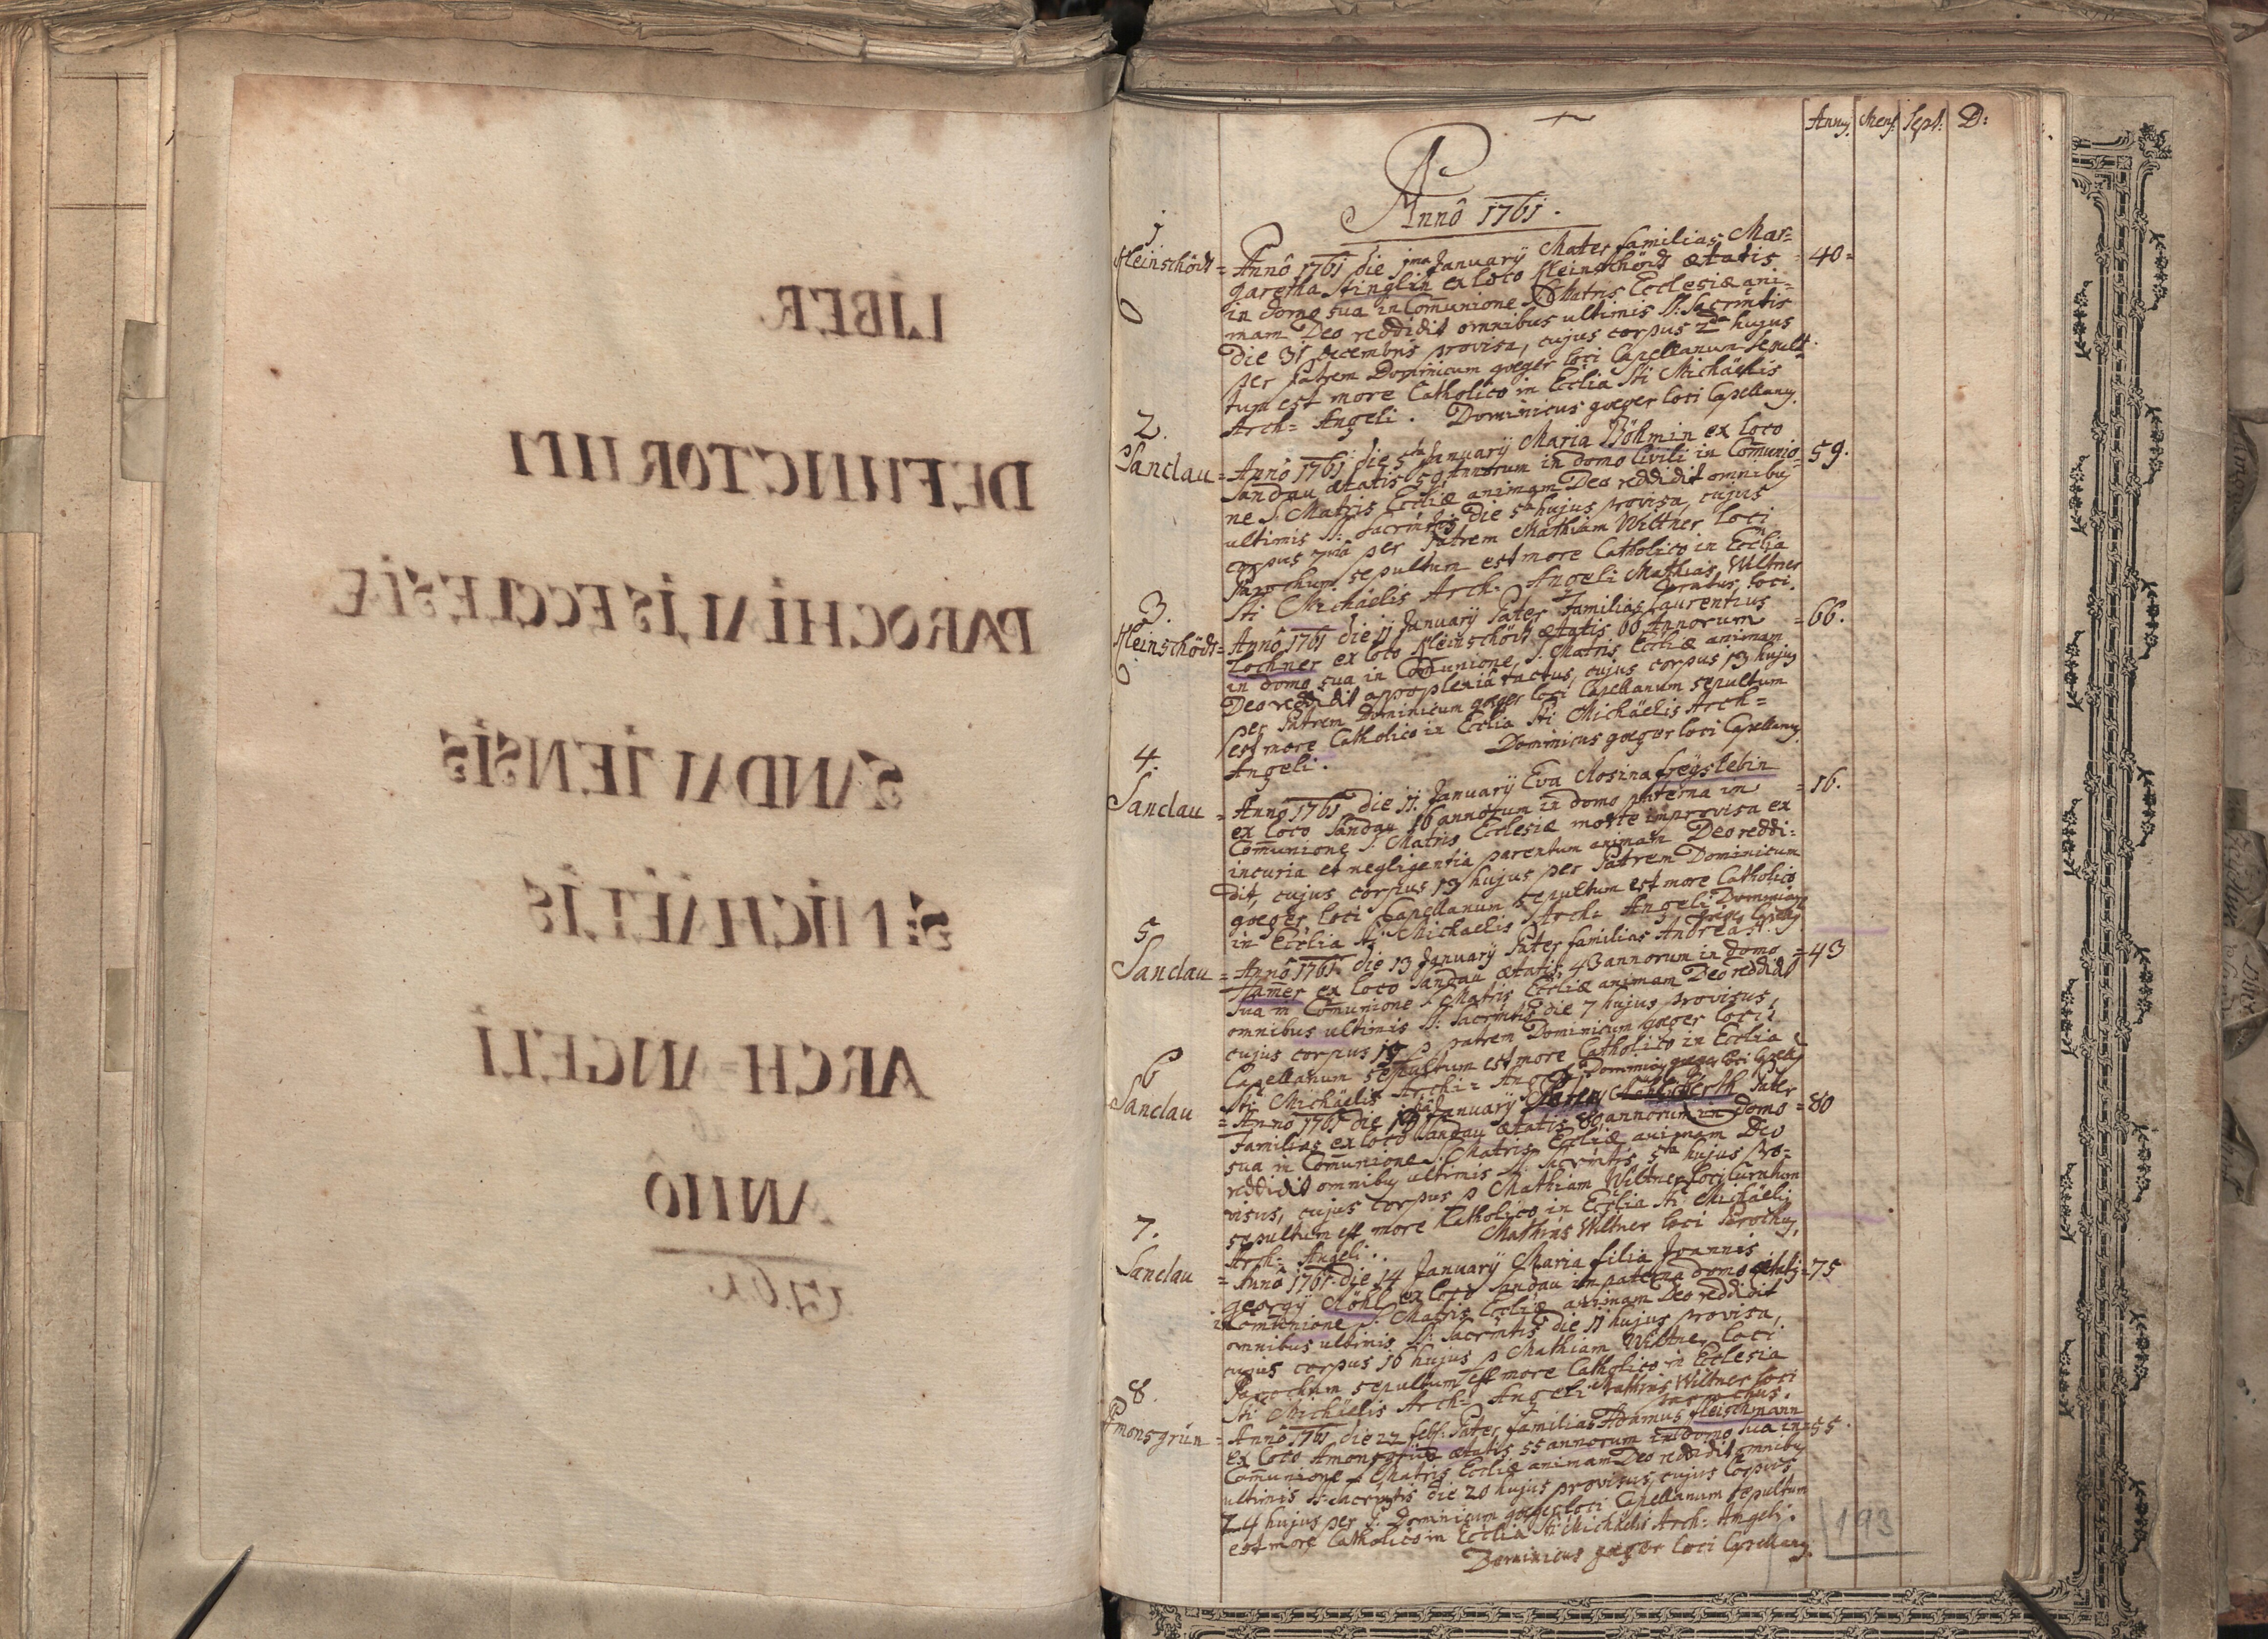 LIBER
DEFUNCTORUM
PAROCHIALIS ECCLESIÆ
SANDAVIENSIS
S: MICHAËLIS
ARCH=ANGELI
ANNÔ
1761.
Annŷ. Mens: Sept: D:
Annô 1761.
1
Kleinschödt = Annô 1761 die 1ma January Mater familias Mar= = 40 =
garetha Stinglin ex loco Kleinschödt ætatis
in domo sua in Comunione S: Matris Ecclesiæ ani=
mam Deo reddidit omnibus ultimis SS: Sacrmtis
Die 31 decembris provisa, cujus corpus 2da hujus
per Patrem Dominicum goeger loci Capellanum sepult
tum est more Catholico in Ecclia Sti Michäelis
Arch= Angeli. Dominicus goeger loci Capellanus.
2.
Sandau = Annô 1761 die 5ta January Maria Böhmin ex loco = 59.
Sandau ætatis 59 Annorum in domo Civili in Comunio=
ne S. Matris Eccliæ animam Deo reddidit omnibus
ultimis SS: Sacrmtis die 5ta hujus provisa, cujus
corpus 7má per Patrem Mathiam Wiltner loci
Parochum sepultum est more Catholico in Ecclia
Sti Michäelis Arch= Angeli Mathias Wiltner
Curatus loci.
3.
Kleinschödt = Annô 1761 die 11 January Pater familias Laurentius = 66.
Lochner ex loco Kleinschödt ætatis 66 Annorum
in domo sua in Comunione, S. Matris Eccliæ animam
Deo reddidit appoplexiâ tactus, cujus corpus 13 hujus
per Patrem Dominicum goeger loci Capellanum sepultum
est more Catholico in Ecclia Sti Michäelis Arch=
Angeli. Dominicus goeger loci Capellanus.
4.
Sandau = Annô 1761 die 11. January Eva Rosina freyslebin = 16.
ex loco Sandau 16 annorum in domo paterna in
Comunione S. Matris Ecclesiæ morte improvisa ex
incuria et negligentia parentum animam Deo reddi=
dit, cujus corpus 13 hujus per Patrem Dominicum
goeger loci Capellanum sepultum est more Catholico
in Ecclia Sti Michaelis Arch= Angeli Dominicus
5
Sandau = Annô 1761. die 13 January Pater familias Andreas = 43
Hamer ex loco Sandau ætatis 43 annorum in domo
sua in Comunione S. Matris Eccliæ animam Deo reddidit
omnibus ultimis SS: Sacrmtis die 7 hujus provisus,
cujus corpus p patrem Dominicum goeger loci
Capellanum sepultum est more Catholico in Ecclia
Sti Michäelis Archi= Angeli Dominicus goeger loci Capell:
6
Sandau = Annô 1761 die January Pater = 80
familias ex loco Sandau ætatis 80 annorum in domo
sua in Comunione S. Matris Eccliæ animam Deo
reddidit omnibus ultimis SS. Sacrmtis 5ta hujus pro=
visus, cujus corpus p Mathiam Wiltner loci Curatum
sepultum est more Katholico in Ecclia Sti Michäelis
Arch= Angeli. Mathias Wiltner loci Parochus.
7.
Sandau = Annô 1761. die 14 January Maria filia Joannis
georgy Röhl ex loco Sandau in paterna domo ætatis = 75
in Comunione S. Matris Eccliæ animam Deo reddidit
omnibus ultimis SS: Sacrmtis die 11 hujus provisa,
cujus corpus 16 hujus p Mathiam Wiltner loci
Parochum sepultum est more Catholico in Ecclesia
Sti Michäelis Arch= Angeli Mathias Wiltner loci
parochus.
8.
Amonsgrün = Annô 1761 die 22 febr: Pater familias Adamus fleischmann
ex loco Amonsgrün ætatis 55 annorum in domo sua in = 55.
Comunione S Matris Eccliæ animam Deo reddidit omnibus
ultimis SS: Sacrmtis die 20 hujus provisus, cujus Corpus
24 hujus per P. Dominicum goeger loci Capellanum sepultum
est more Catholico in Ecclia Sti Michäelis Arch: Angeli.
Dominicus goeger loci Capellanus.
193